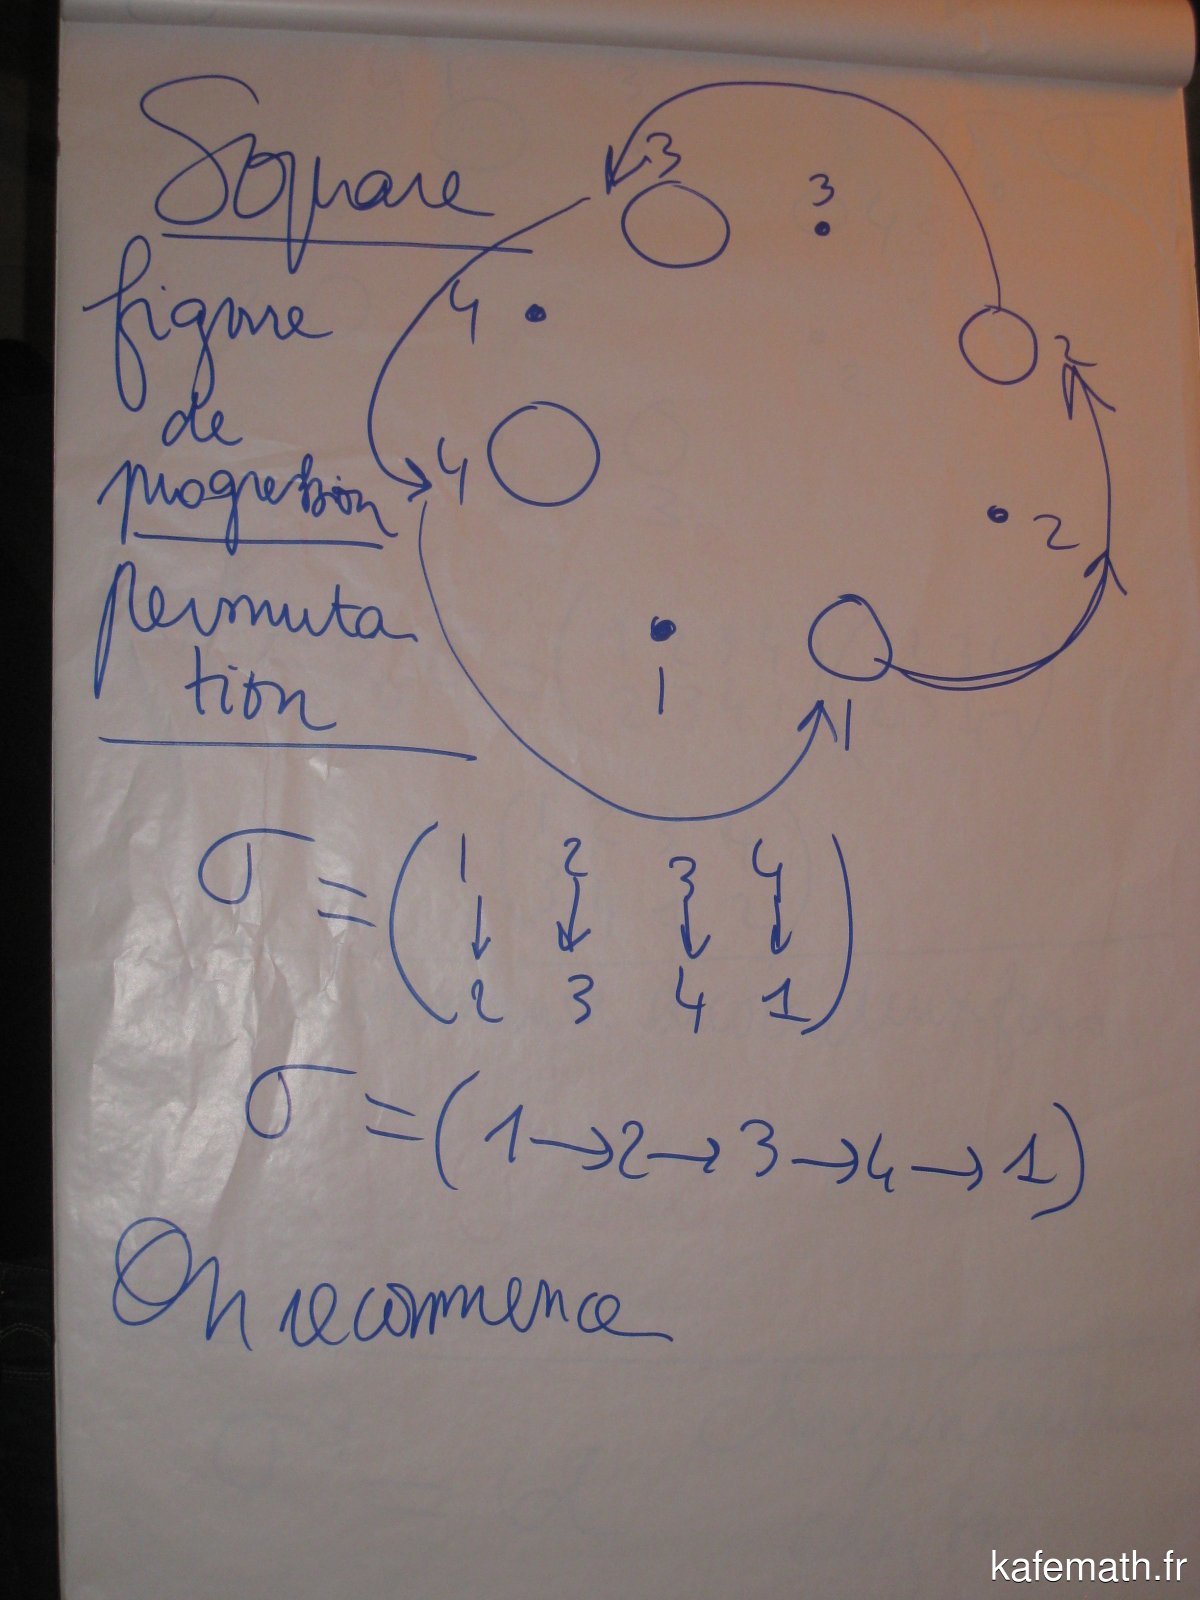 Square
figure
de
progression
permuta
tion
3
3
4
2
4
2
1
1
σ = ( 1 2 3 4
↓ ↓ ↓ ↓
2 3 4 1 )
σ = ( 1 → 2 → 3 → 4 → 1 )
On recommence
kafemath.fr